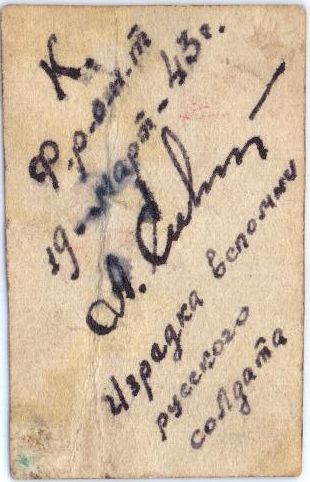 К.
Ф-р-о-н-т
19-март-43 г.
Изредка вспомни
русского
солдата